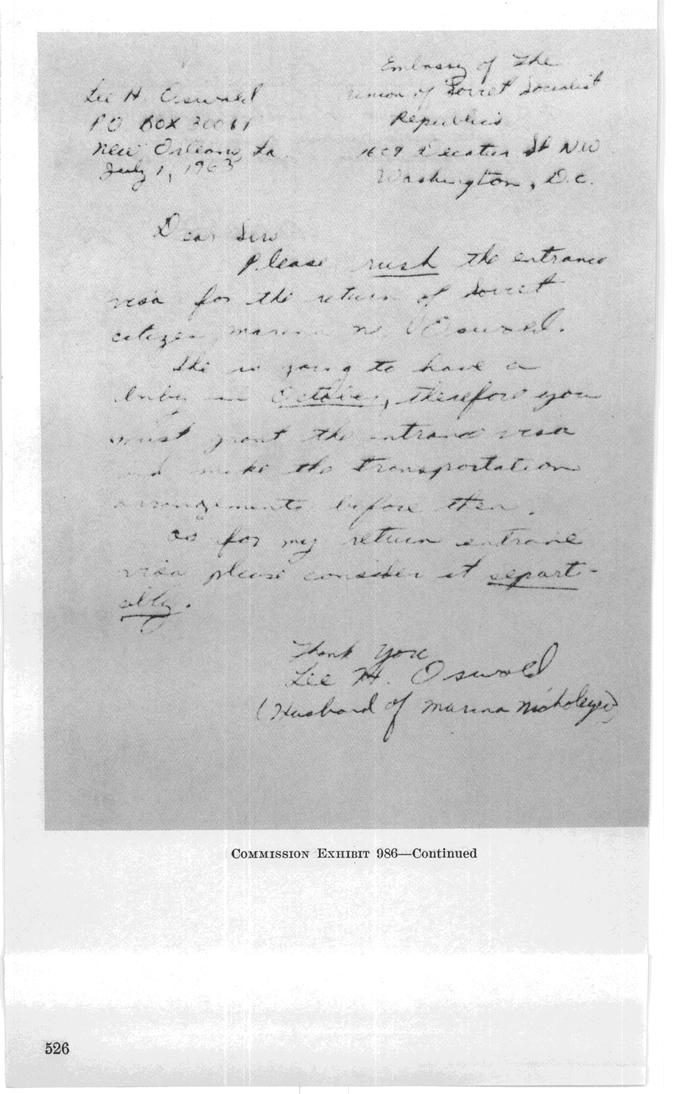 Lee H. Oswald
P.O. Box 30061
New Orleans, La.
July 1, 1963
Embassy of The
Union of Soviet Socialist
Republics
Decatur St NW
Washington, D.C.
Dear Sirs
Please rush the entrance
visa for the return of Soviet
citizen, Marina N. Oswald.
She is going to have a
baby in October, therefore you
must grant the entrance visa
and make the transportation
arrangements before then.
As for my return entrance
visa please consider it separt-
ally.
Thank you
Lee H. Oswald
(Husband of Marina Nicholeyev)
COMMISSION EXHIBIT 986—Continued
526